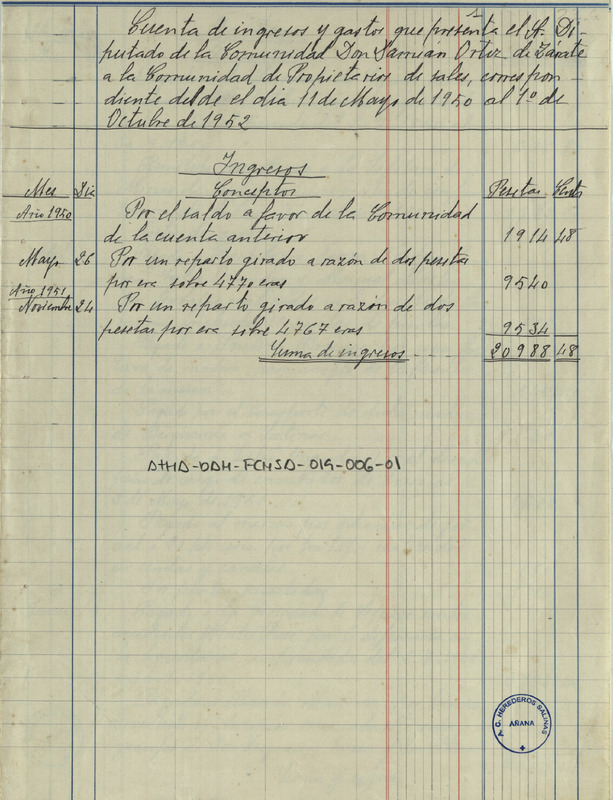 Cuenta de ingresos y gastos que presenta el Sr. Di-
putado de la Comunidad Don Damián Ortiz de Zárate
a la Comunidad de Propietarios de sales, correspon
diente desde el dia 11 de Mayo de 1950 al 1º de
Octubre de 1952
Ingresos
Mes Dia Conceptos Pesetas Cents
Año 1950 Por el saldo a favor de la Comunidad
de la cuenta anterior 1914 48
Mayo 26 Por un reparto girado a razón de dos pesetas
por era sobre 4770 eras 9540
Año 1951
Noviembre 24 Por un reparto girado a razón de dos
pesetas por era sobre 4767 eras 9534
Suma de ingresos 20988 48
ATHA-DAH-FCHSA-019-006-01
A.C. HEREDEROS SALINAS
AÑANA